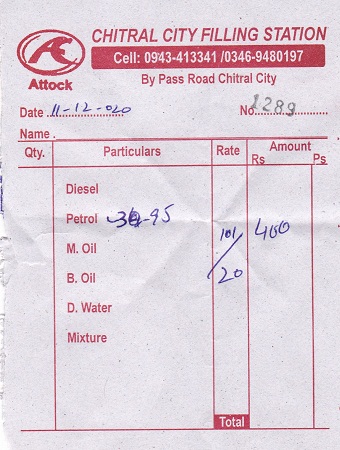 CHITRAL CITY FILLING STATION
Cell: 0943-413341 /0346-9480197
Attock
By Pass Road Chitral City
Date 11-12-020 No. 1289
Name .
Qty. Particulars Rate Amount
Rs Ps
Diesel
Petrol 3-95 101/20 400
M. Oil
B. Oil
D. Water
Mixture
Total